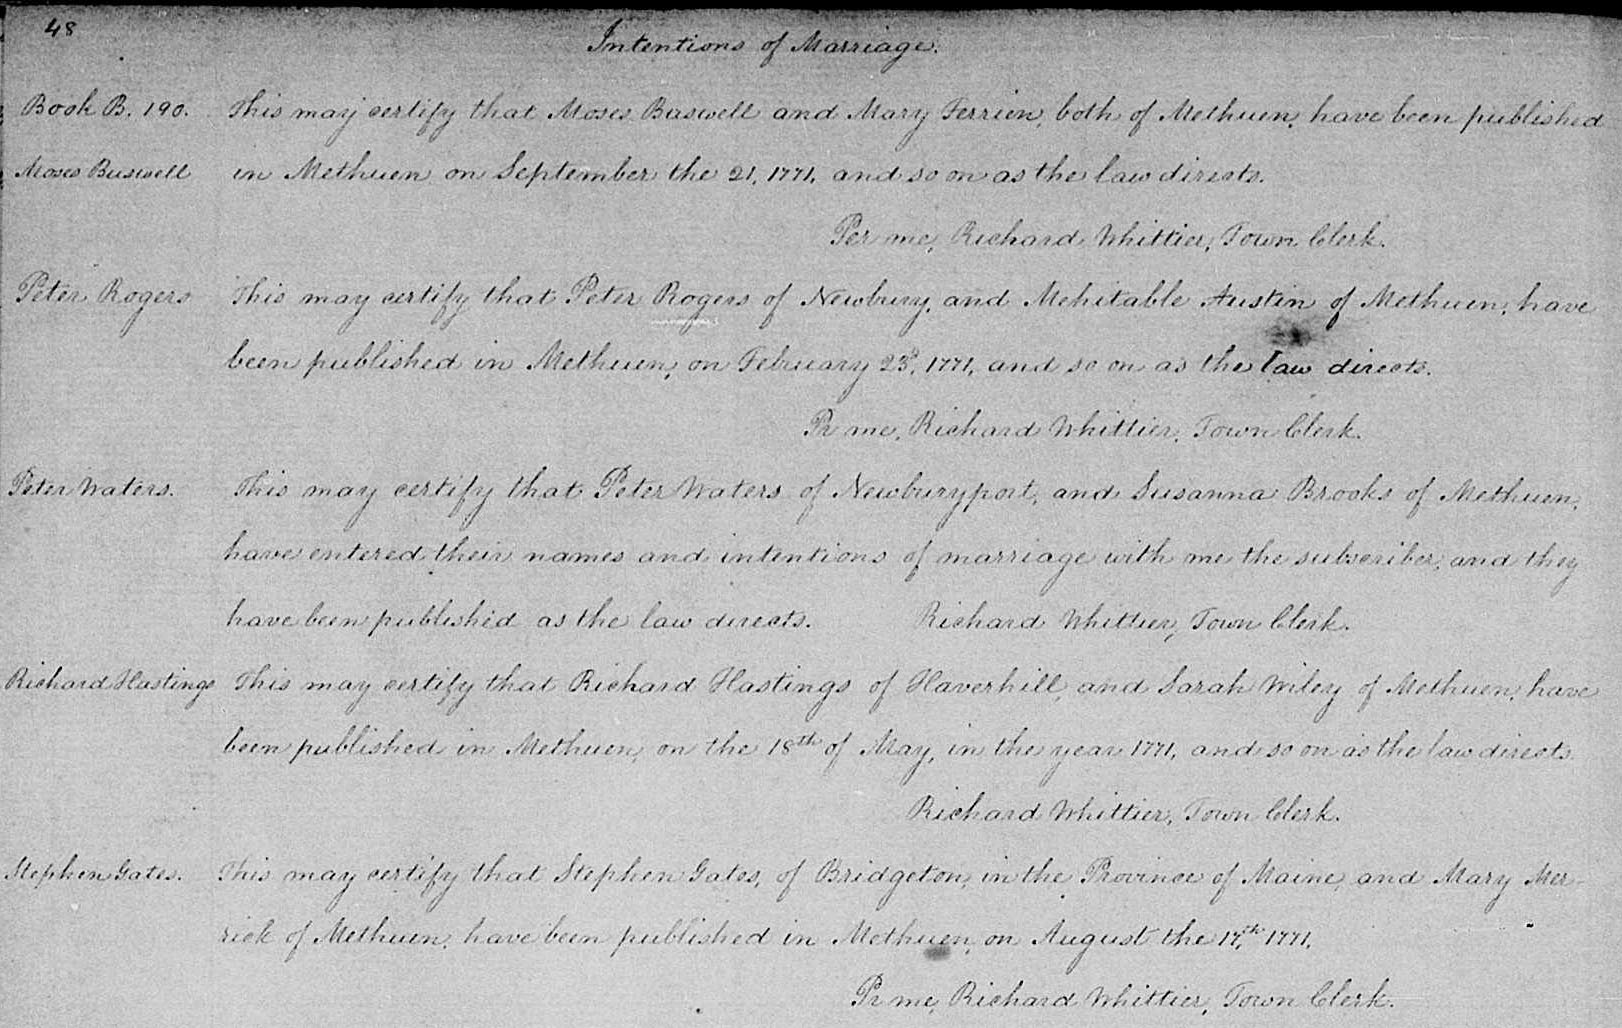 48
Intentions of Marriage.
Book B. 190. This may certify that Moses Baswell and Mary Ferrien, both of Methuen, have been published
Moses Buswell in Methuen on September the 21, 1771, and so on as the law directs.
Per me, Richard Whittier, Town Clerk.
Peter Rogers This may certify that Peter Rogers of Newbury, and Mehitable Austin of Methuen, have
been published in Methuen, on February 23d, 1771, and so on as the law directs.
Pr me, Richard Whittier, Town Clerk.
Peter Waters. This may certify that Peter Waters of Newburyport, and Susanna Brooks of Methuen,
have entered their names and intentions of marriage with me the subscriber, and they
have been published as the law directs. Richard Whittier, Town Clerk.
Richard Hastings This may certify that Richard Hastings of Haverhill, and Sarah Wiley of Methuen, have
been published in Methuen, on the 18th of May, in the year 1771, and so on as the law directs.
Richard Whittier, Town Clerk.
Stephen Gates. This may certify that Stephen Gates, of Bridgeton, in the Province of Maine, and Mary Mer-
rick of Methuen, have been published in Methuen, on August the 17th, 1771.
Pr me, Richard Whittier, Town Clerk.